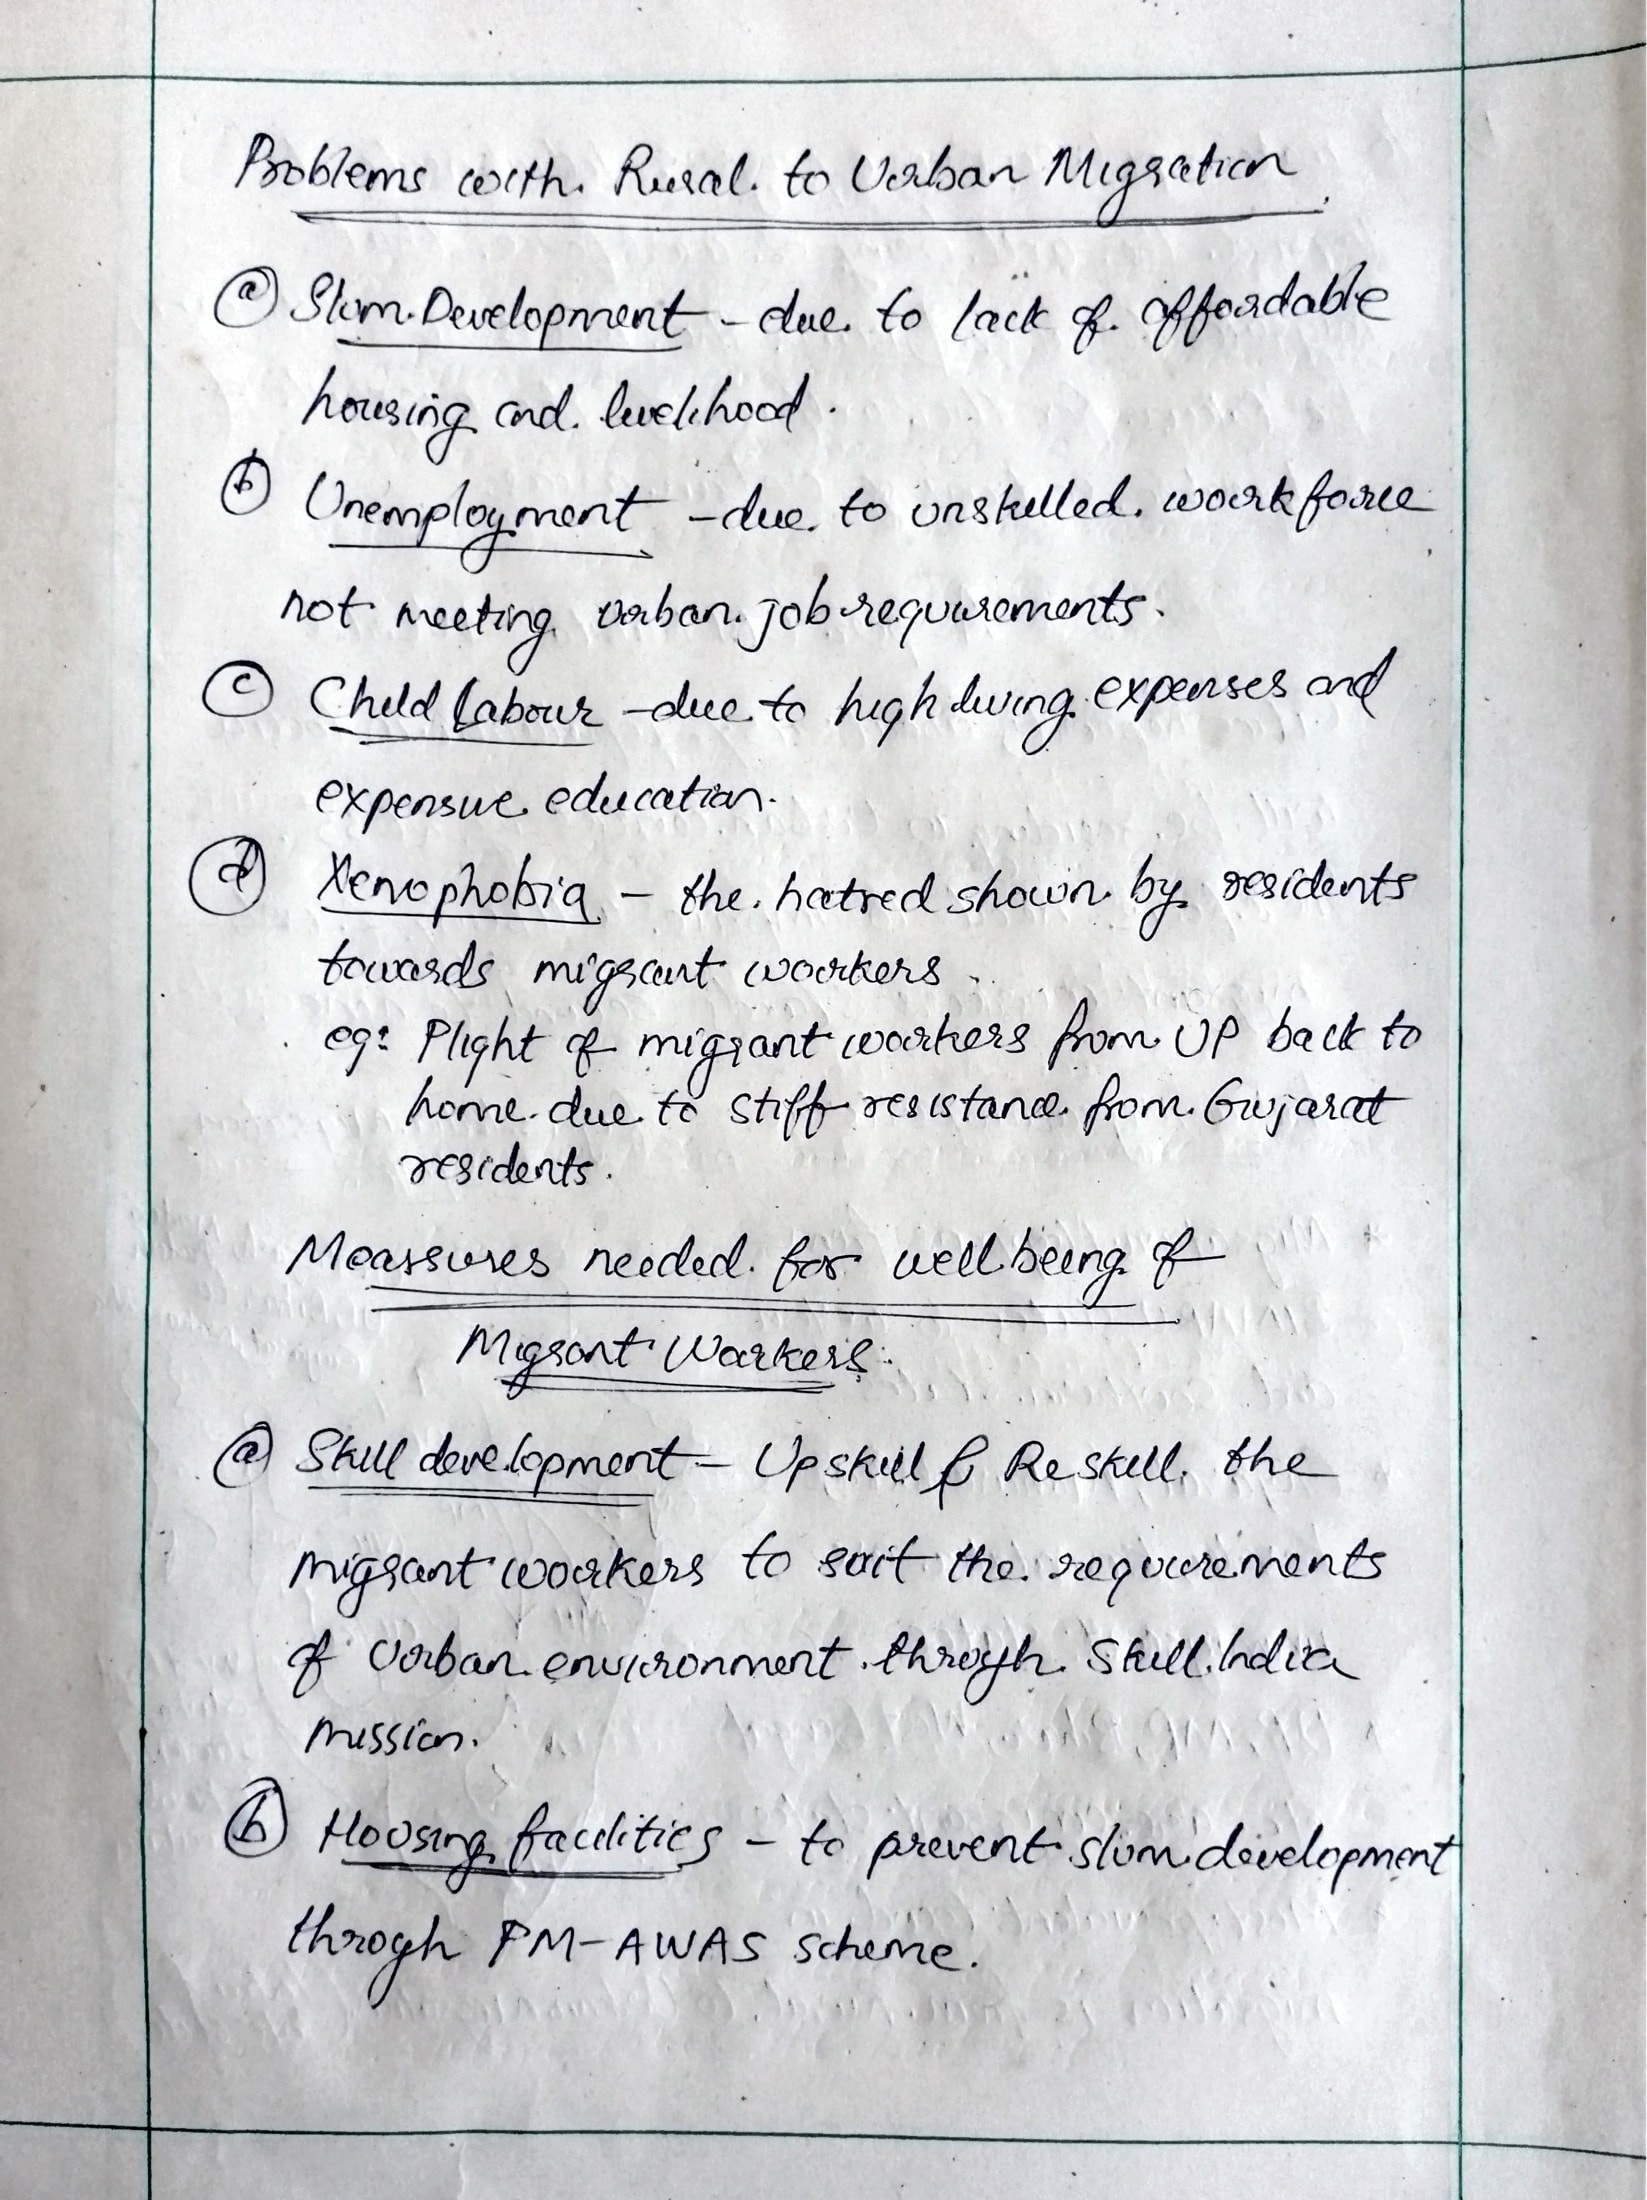 Problems with Rural to Urban Migration
(a) Slum Development - due to lack of affordable
housing and livelihood.
(b) Unemployment - due to unskilled workforce
not meeting urban job requirements.
(c) Child Labour - due to high living expenses and
expensive education.
(d) Xenophobia - the hatred shown by residents
towards migrant workers.
eg: Plight of migrant workers from UP back to
home due to stiff resistance from Gujarat
residents.
Meassures needed for well being of
Migrant Workers:
(a) Skill development - Upskill & Reskill the
migrant workers to suit the requirements
of Urban environment through Skill India
mission.
(b) Housing facilities - to prevent slum development
throgh PM-AWAS scheme.